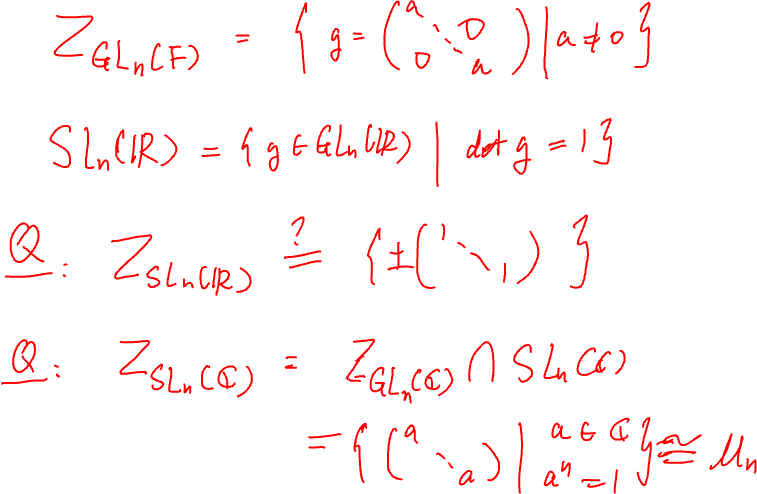 Z_{GL_n(F)} = { g = ( a 0 ⋱ 0 a ) | a ≠ 0 }
SL_n(ℝ) = { g ∈ GL_n(ℝ) | det g = 1 }
Q: Z_{SL_n(ℝ)} ?= { ± ( 1 ⋱ 1 ) }
Q: Z_{SL_n(ℂ)} = Z_{GL_n(ℂ)} ∩ SL_n(ℂ)
= { ( a ⋱ a ) | a ∈ ℂ a^n = 1 } ≅ μ_n